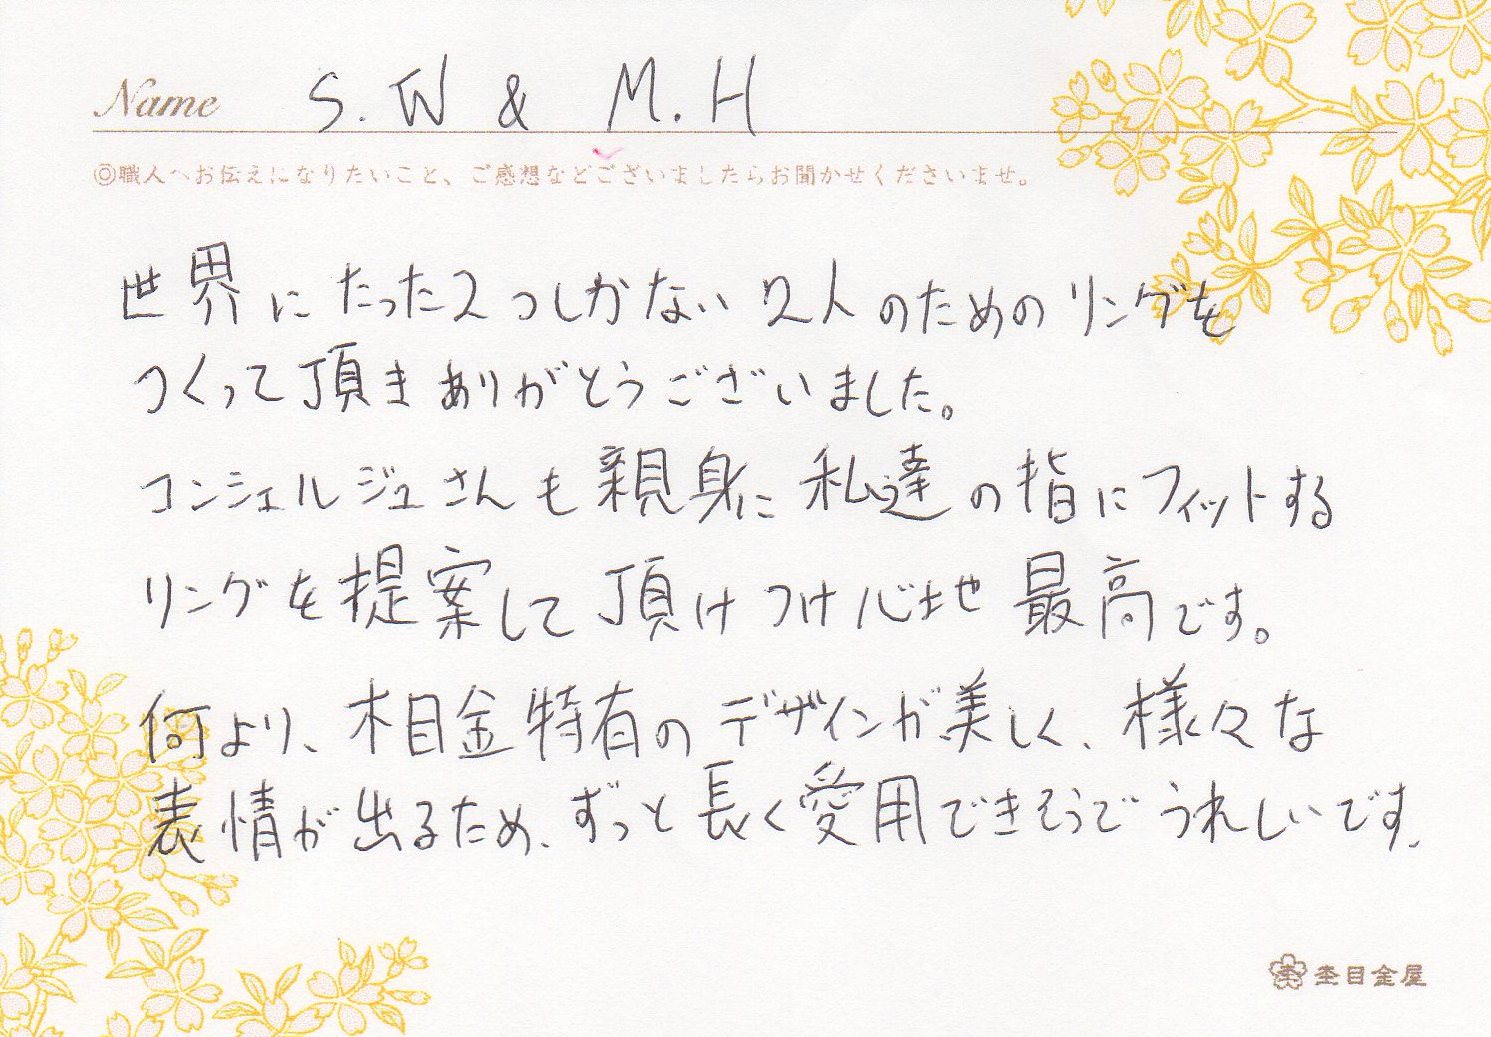 Name S. W & M. H
◎職人へお伝えになりたいこと、ご感想などございましたらお聞かせくださいませ。
世界にたった2つしかない2人のためのリングを
つくって頂きありがとうございました。
コンシェルジュさんも親身に私達の指にフィットする
リングを提案して頂けつけ心地最高です。
何より、木目金特有のデザインが美しく、様々な
表情が出るため、ずっと長く愛用できそうでうれしいです.
杢目金屋